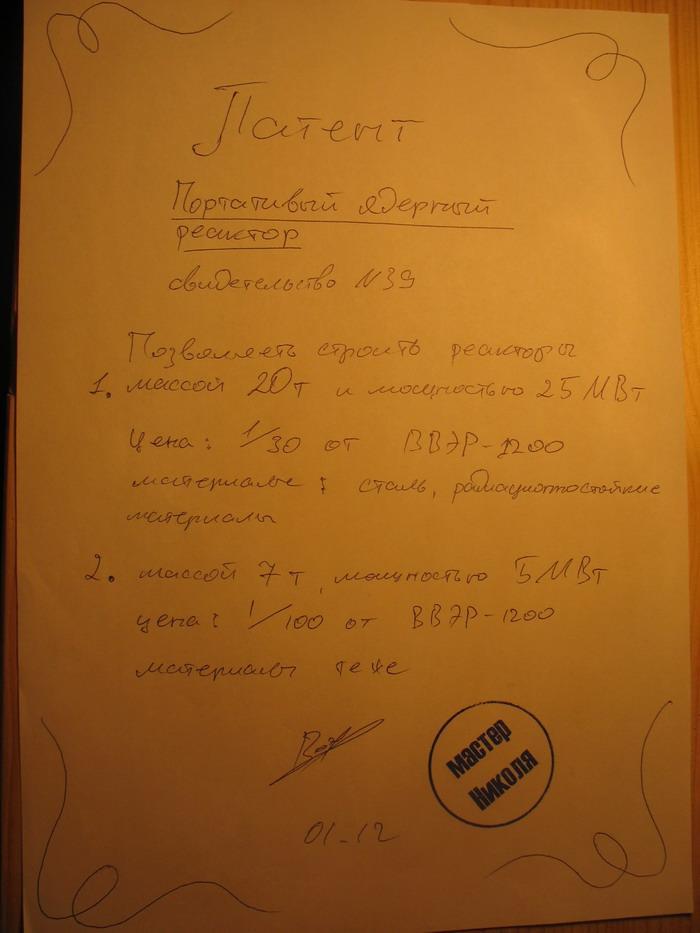 Патент
Портативый ядерный
реактор
свидетельство N39
Позволяеть строить реакторы
1. массой 20т и мощностью 25 МВт
Цена: 1/30 от ВВЭР-1200
материалы: сталь, радиационностойкие
материалы
2. массой 7т, мощностью 5МВт
цена: 1/100 от ВВЭР-1200
материалы те же
01-12
мастер
Николя